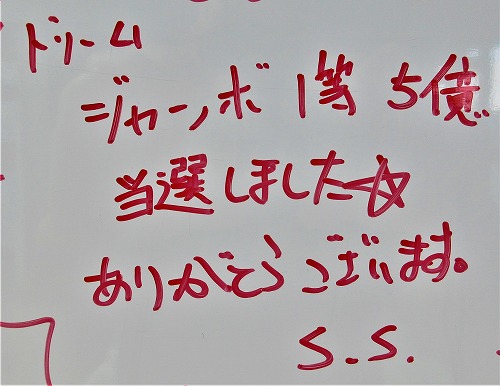 ドリーム
ジャンボ 1等 5億
当選しました☆
ありがとうございます。
S.S.